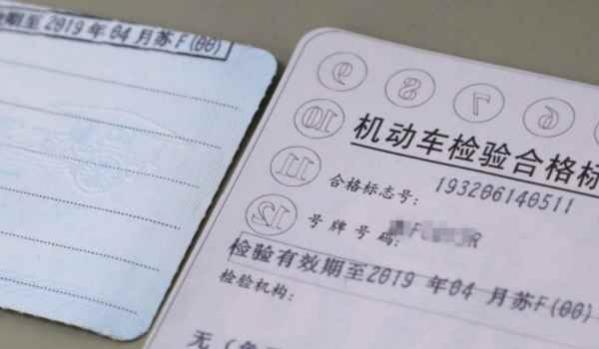 效期至2019年04月苏F(00)
9 8 7 6
10
机动车检验合格标
11
合格标志号: 193206140511
12
号牌号码:
检验有效期至2019年04月苏F(00)
检验机构:
无